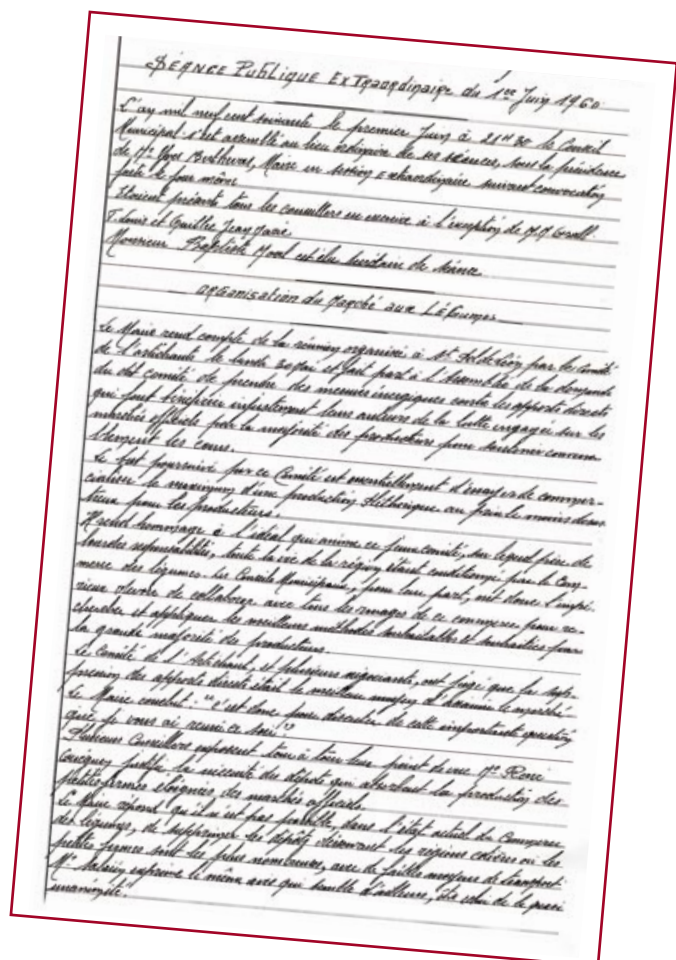 Séance Publique Extraordinaire du 1er Juin 1960
L'an mil neuf cent soixante le premier Juin à 21H30 le Conseil
Municipal s'est assemblé au lieu ordinaire de ses séances, sous la présidence
de Mr Yves Maire en session Extraordinaire suivant convocation
faite le jour même
Etaient présents tous les conseillers en exercice à l'exception de M.M.
T. Louis et Jean Marie
Monsieur Baptiste est élu secrétaire de séance
Organisation du Marché aux Légumes
Le Maire rend compte de la réunion organisée à St Pol de Léon par le Comité
de l'artichaut le lundi 30 Mai et fait part à l'Assemblée de la demande
du dit comité de prendre des mesures énergiques contre les apports directs
qui font bénéficier injustement leurs auteurs de la lutte engagée sur les
marchés officiels par la majorité des producteurs pour soutenir convena-
blement les cours.
Le but poursuivi par ce Comité est essentiellement d'essayer de commer-
cialiser le maximum d'une production pléthorique au prix le moins désas-
treux pour les producteurs.
Il rend hommage à l'idéal qui anime ce jeune comité, sur lequel pèse de
lourdes responsabilités, toute la vie de la région étant conditionnée par le com-
merce des légumes. Les Conseils Municipaux, pour leur part, ont donc l'impé-
rieux devoir de collaborer avec tous les rouages de ce commerce pour re-
chercher et appliquer les meilleures méthodes souhaitables et souhaitées par
la grande majorité des producteurs.
Le Comité de l'Artichaut, et plusieurs négociants, ont jugé que la sup-
pression des apports directs était le meilleur moyen d'assainir le marché
Le Maire conclut : "c'est donc pour discuter de cette importante question
que je vous ai réuni ce soir."
Plusieurs Conseillers exposent tour à tour leur point de vue Mr René
justifie la nécessité des dépôts qui absorbent la production des
petites fermes éloignées des marchés officiels.
Le Maire répond qu'il n'est pas possible, dans l'état actuel du Commerce
des légumes, de supprimer les dépôts desservant les régions côtières où les
petites fermes sont les plus nombreuses, avec de faibles moyens de transport.
Mr exprime le même avis qui semble d'ailleurs, être celui de la quasi
unanimité.